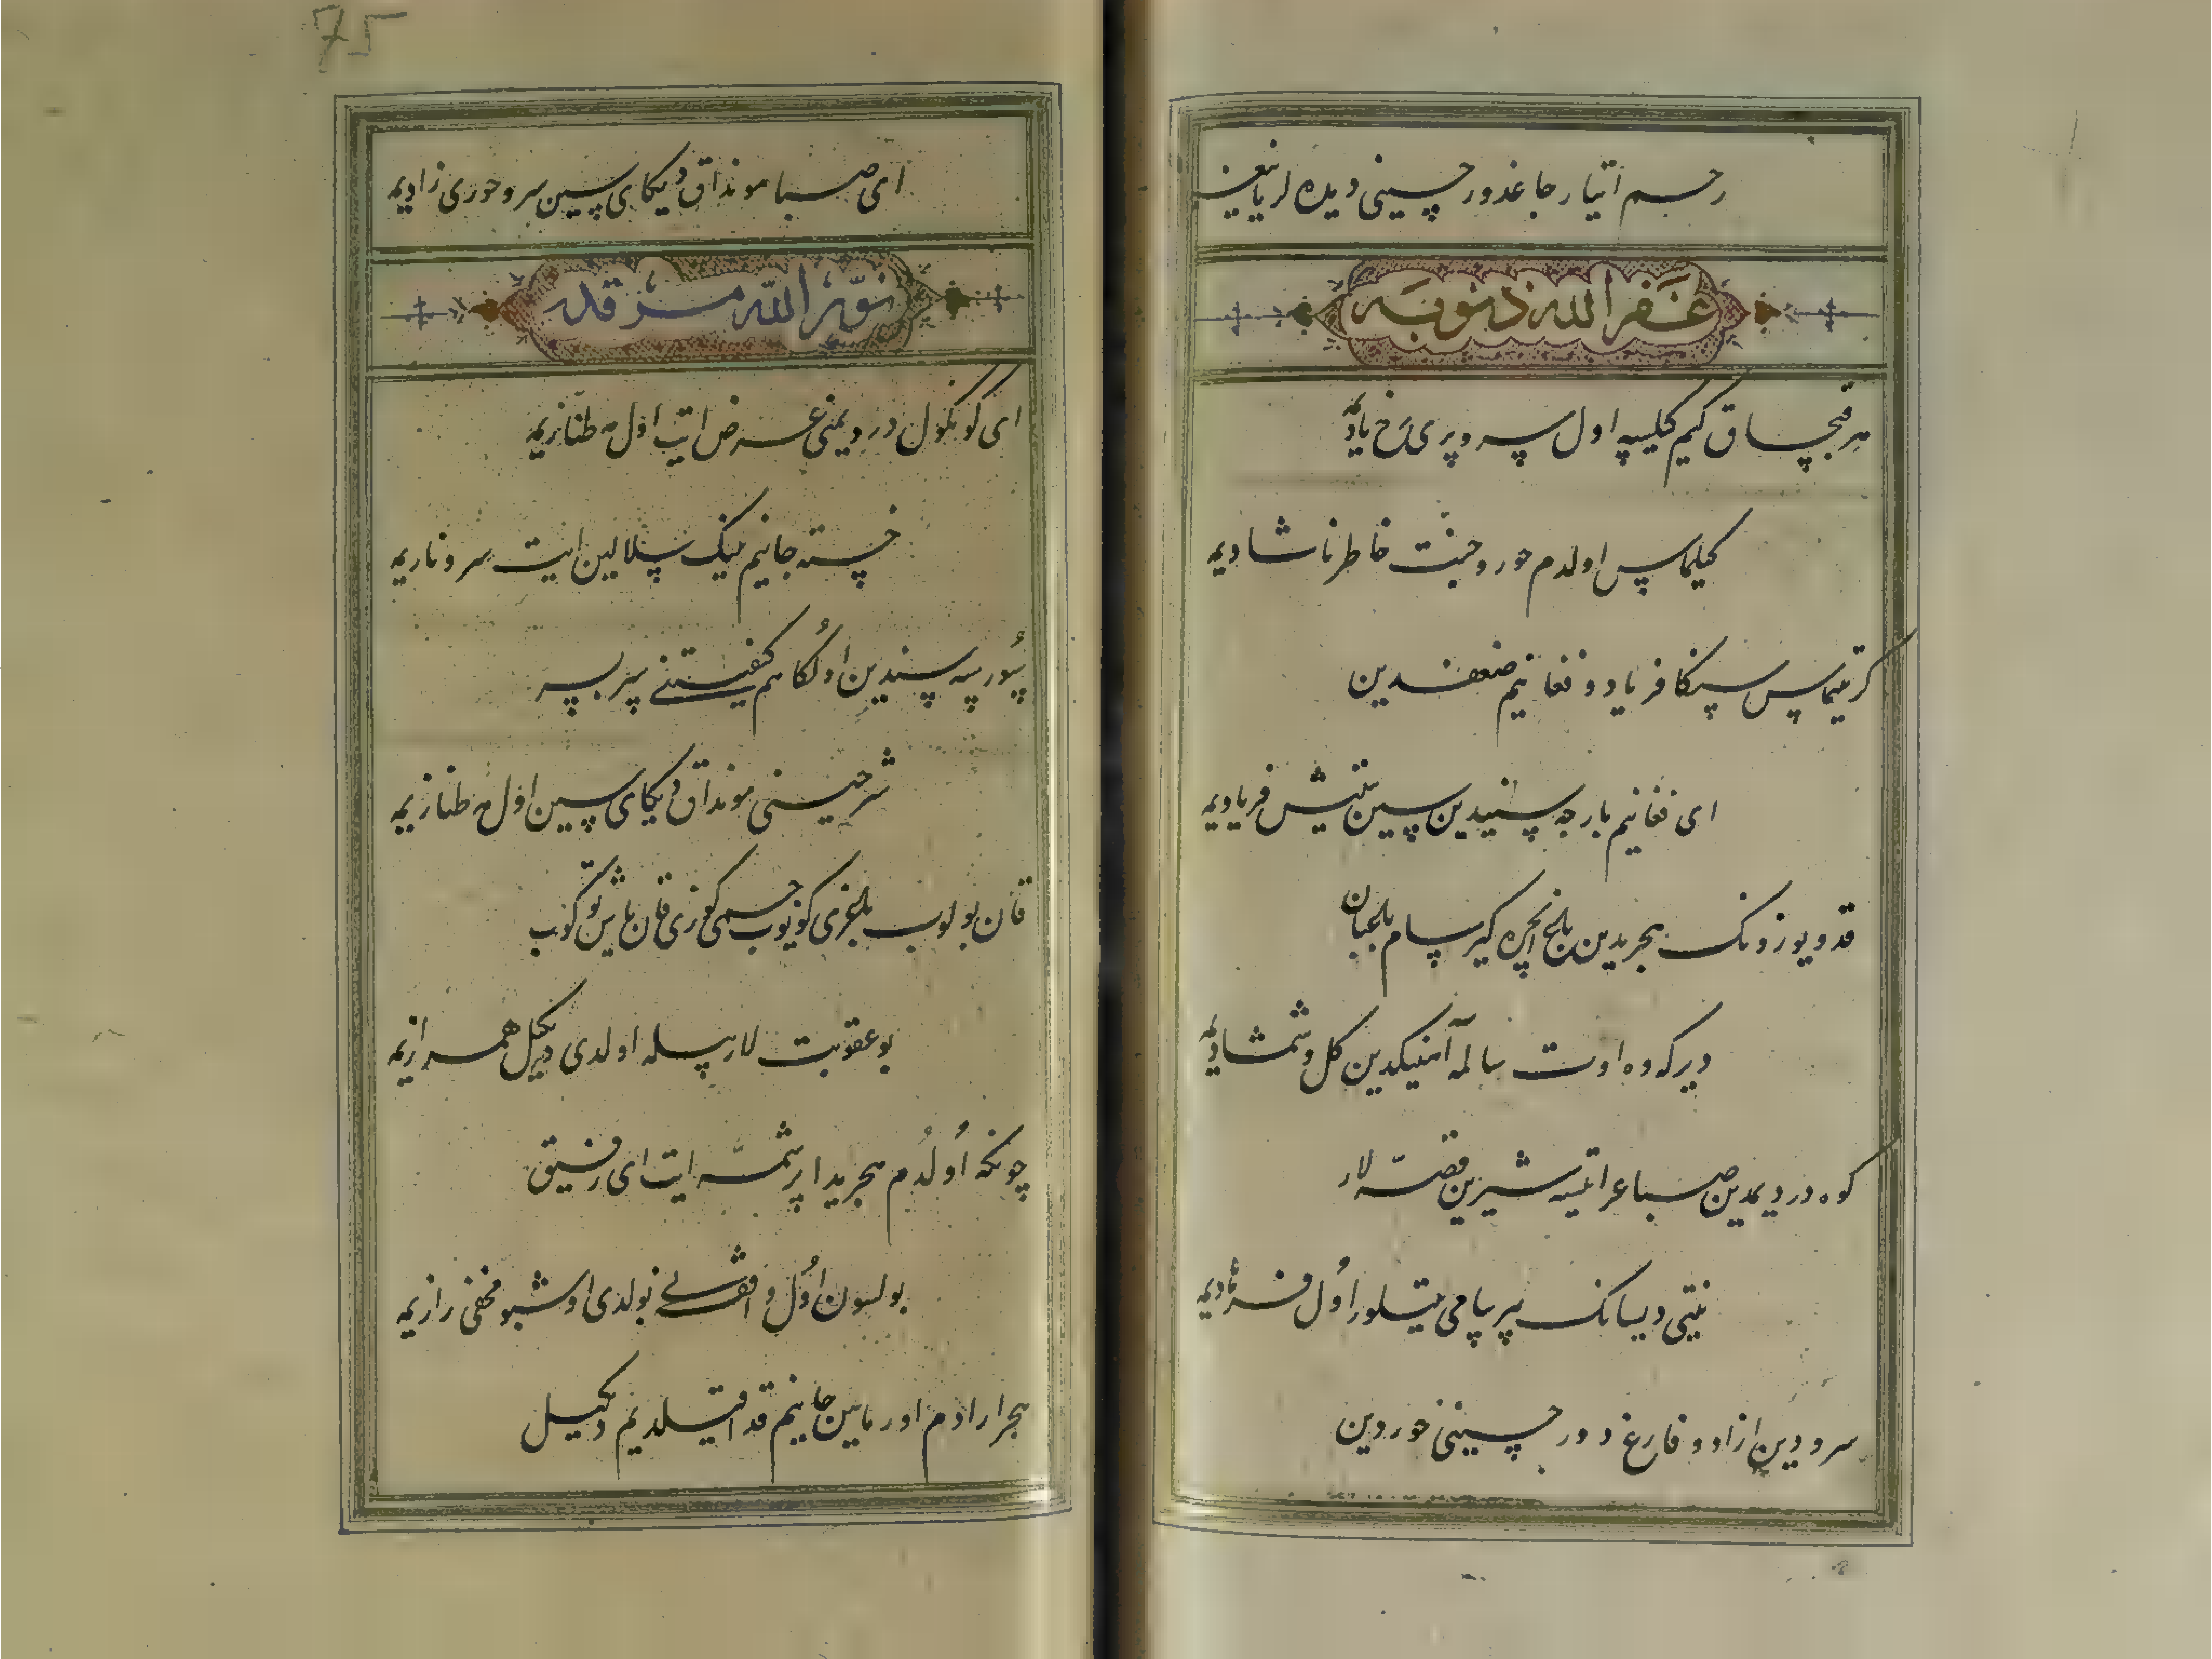 رحم ایتار جاغدور چسینی دیده لر یا نغیز
غفر الله ذنوبه
هر قچان کیم کیلسه اول سرو پری رخ یادیمه
کیلماس اولدم حور و جنت خاطر ناشادیمه
کرتیماس سنکا فریاد و فغانیم ضعفدین
ای فغانیم بارجه سنیدین سین یتیش فریادیمه
قد و یوزونک هجریدین باغ ایچره کیرسام باغبان
دیر که وه اوت سالمه آهینکدین کل و شمشادیمه
کوه دردیمدین صبا عرا تیسه شیرین قصه لار
نیتی دیسانک بیر پیامی یتیلور اول فرهادیمه
سرودین ازاد و فارغ دور حسینی حوردین
75
ای صبا مونداق دیکای سین سرو حوری زادیمه
نور الله مرقده
ای کونکول دردیمنی عرض ایت اول مه طنازیمه
خسته جانیم نیک یتلالین ایت سرو نازیمه
بور سه سندین اولکاهم کیفیتنی بیر بیر
شرحینی مونداق دیکای سین اول مه طنازیمه
قان بولوب بغری کویوب جسمی کوزی قان یاش توکوب
بو عقوبت لار بیله اولدی دیکیل همرازیمه
چونکه اولدم هجریدا بر شمه ایت ای رفیق
بولسون اول واقف نی بولدی اوشبو مخفی رازیمه
هجر ارا دم اورماین جانیم فدا قیلدیم دیکیل